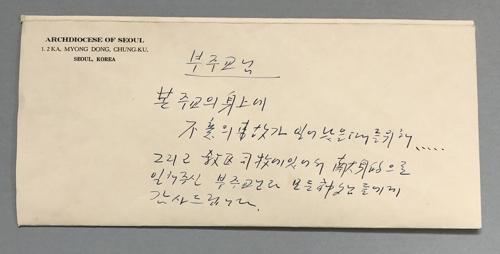 ARCHDIOCESE OF SEOUL
1. 2 KA, MYONG DONG, CHUNG-KU.
SEOUL, KOREA
부주교님
본 주교의 身上에
不意의 事故가 일어났을때를위해.....
그리고 敎区司牧에있어서 献身的으로
일해주신 부주교님과 모든 神父님들에게
감사드립니다.